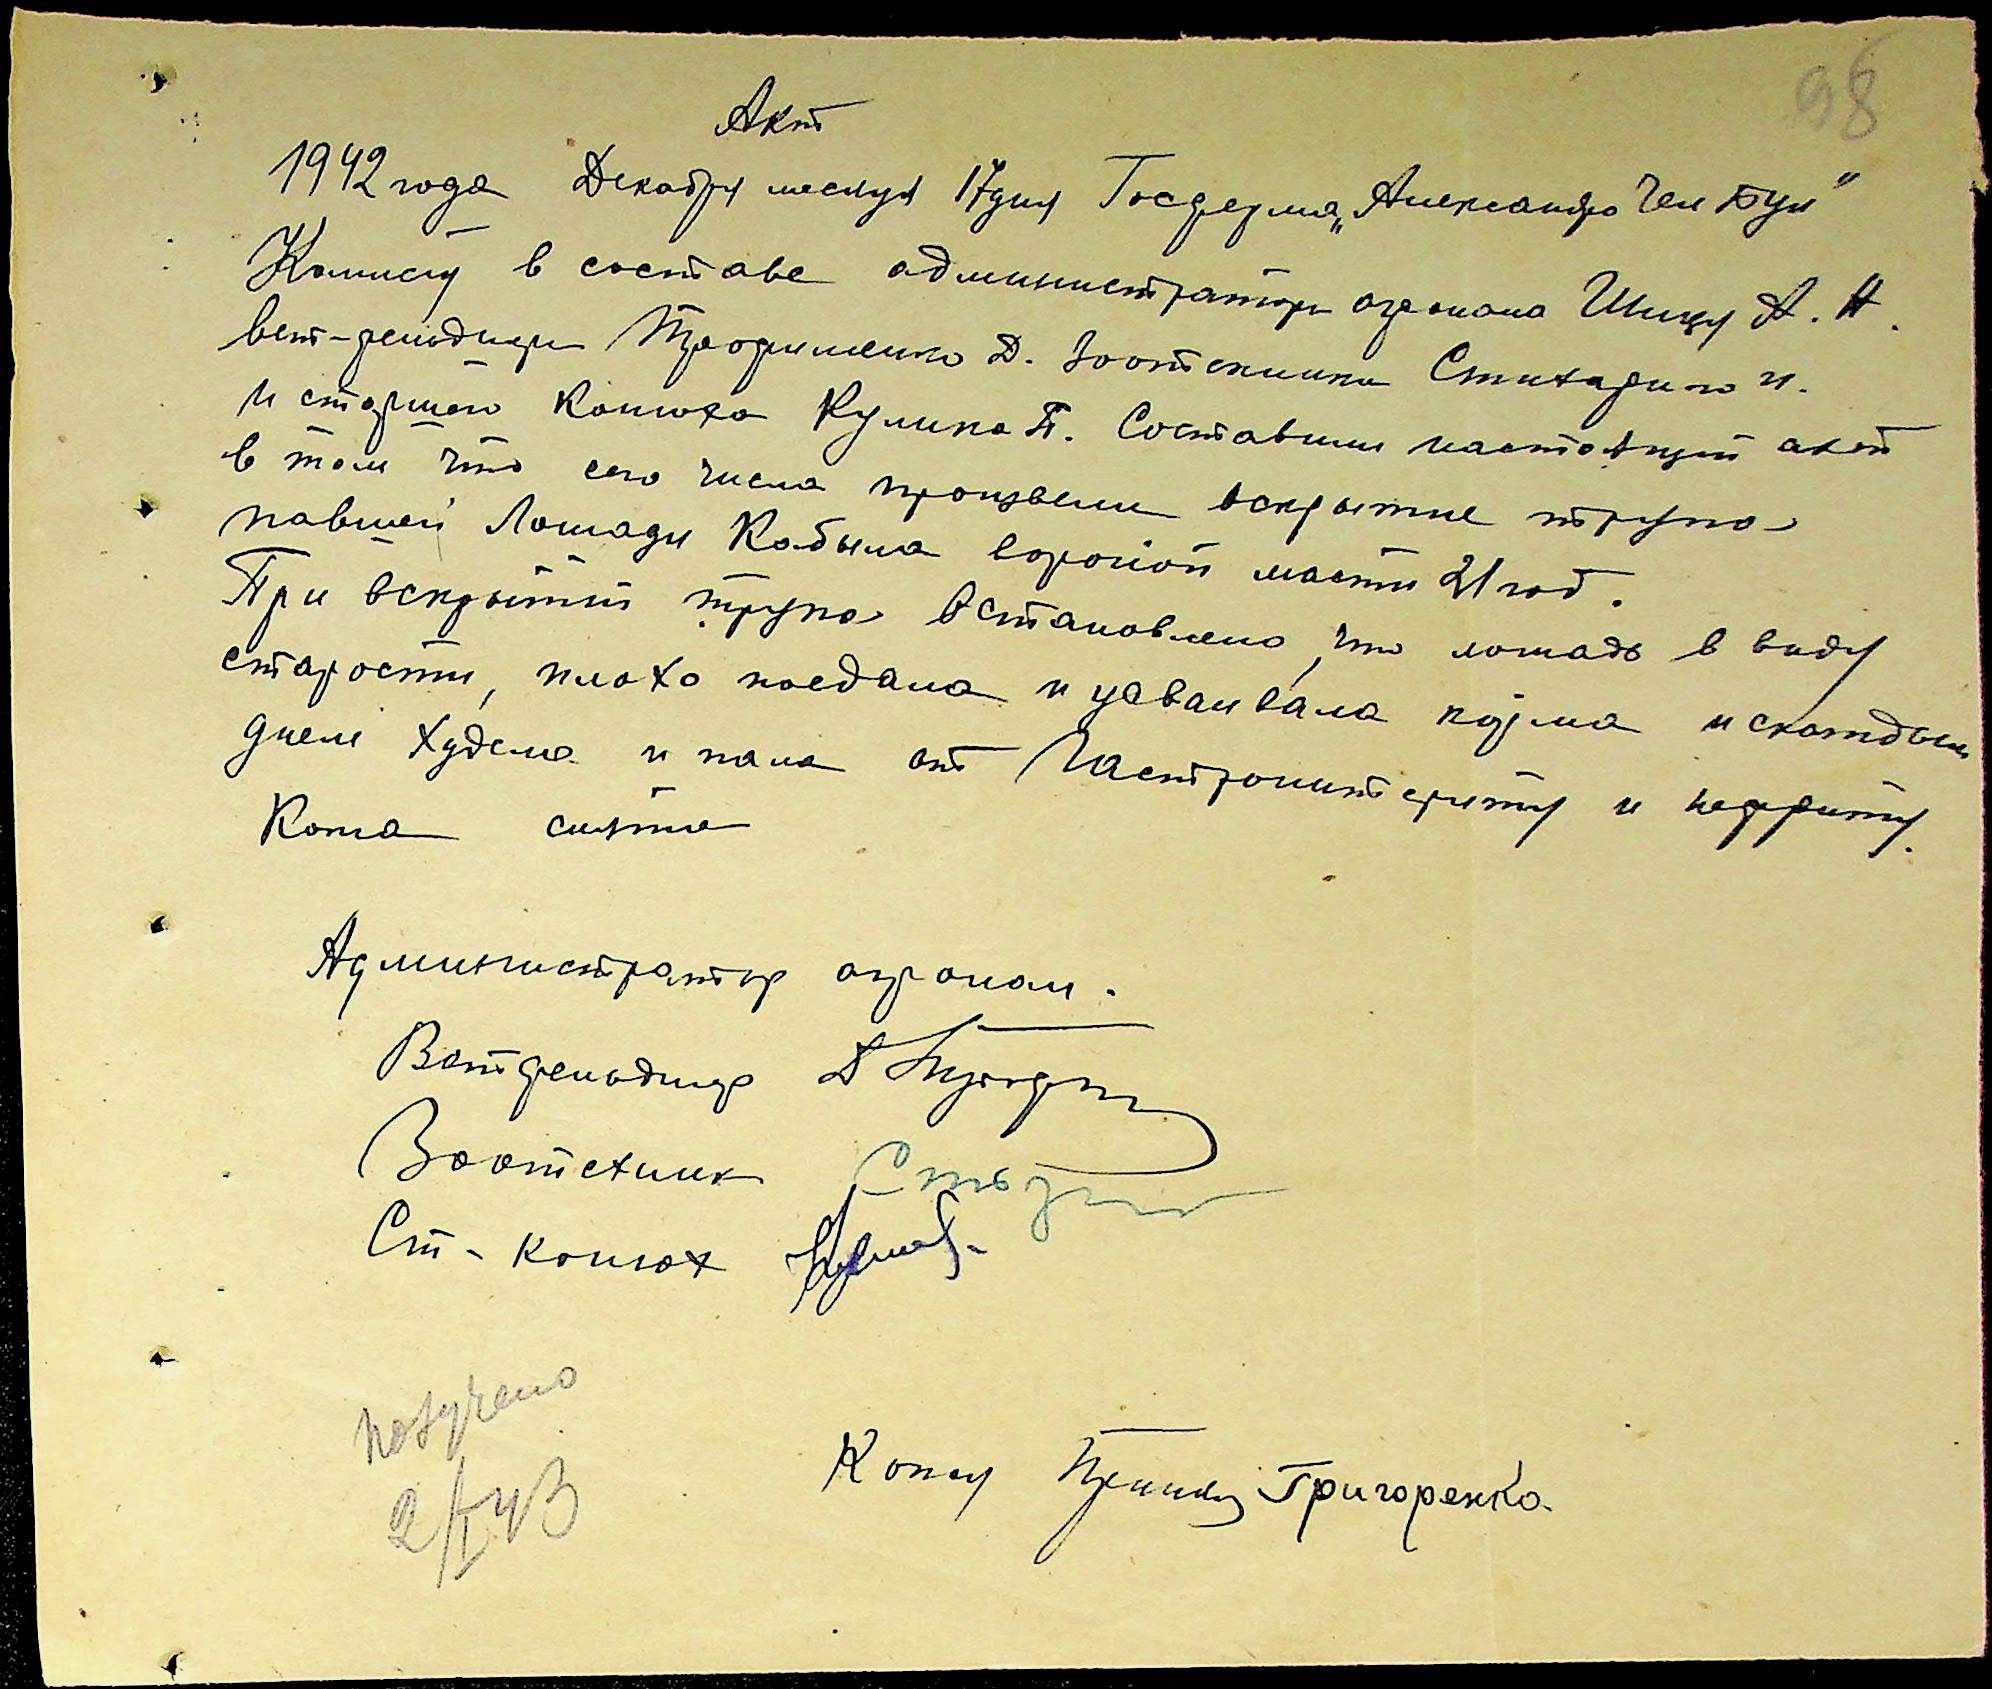 98
Акт
1942 года Декабря месяца 17 дня Госферма „Александро Чел Бун"
Комисия в составе администратора агронома Шинку А. Н.
вет-фельдшера Трофименко Д. Зоотехника Стихарного И.
и старшего конюха Кулика П. Составили настоящий акт
в том что сего числа произвели вскрытие трупа
павшей Лошади Кобыла вороной масти 21 год.
При вскрытии трупа встановлено, что лошадь в виду
старости, плохо поедала и усваивала корма и скаждым
днем худела и пала от Гастроинтериту и нефриту.
Кожа снята
Администратор агроном.
Ветфельдшер Д
Зоотехник
Ст-конюх
получено
2/I 43
Кожу Григоренко.